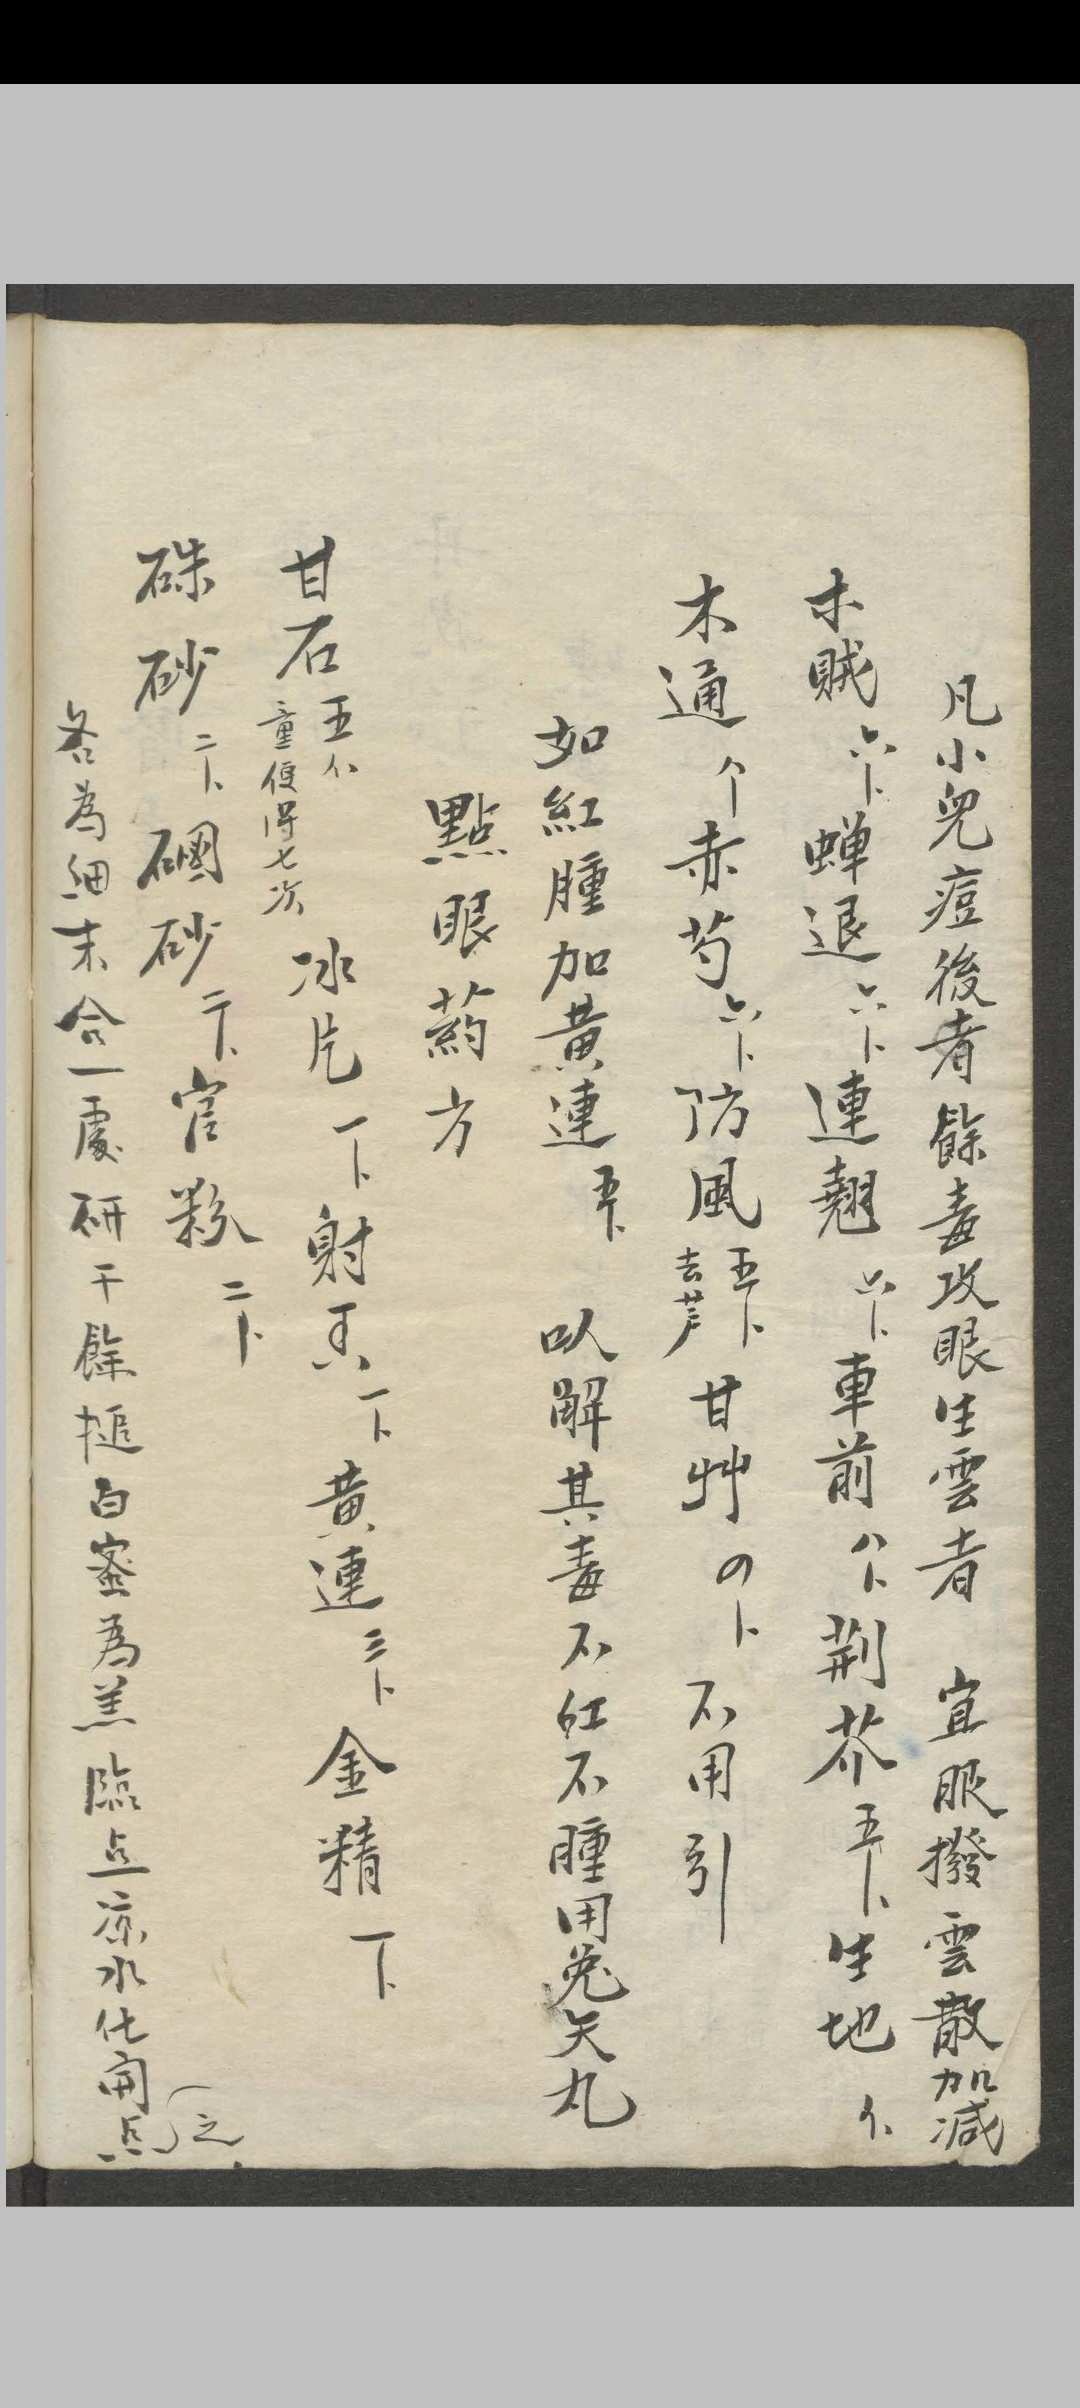 凡小兒痘後者餘毒攻眼生雲者 宜服撥雲散加減
木賊六卜蝉退六卜連翹六卜車前八卜荆芥五卜生地
木通 赤芍六卜防風五卜去芦甘艸四卜 不用引
如紅腫加黃連五卜 以解其毒不紅不腫用兔矢丸
點眼药方
甘石五 童便淬七次 冰片一卜射香一卜黃連三卜金精一卜
硃砂二卜硇砂二卜官粉二卜
各為細末合一處研千餘搥白蜜為羔臨点凉水化開点之